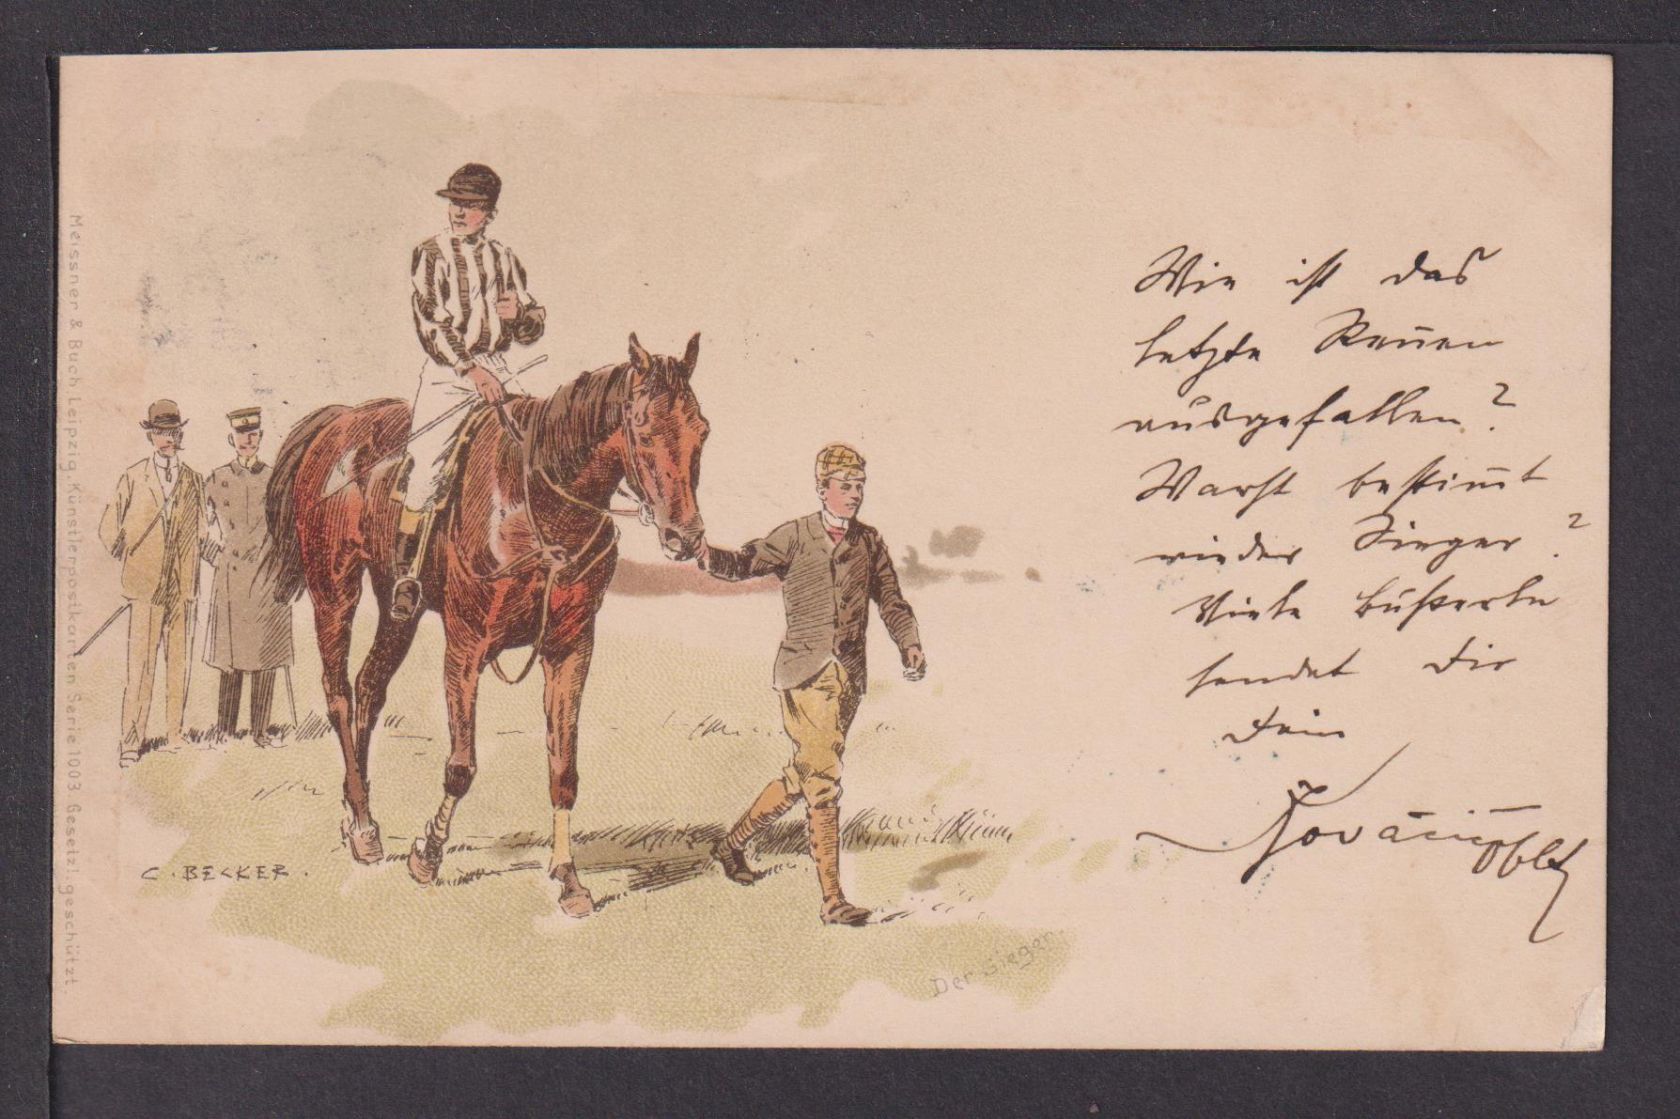 Meissner & Buch Leipzig. Künstlerpostkarten Serie 1003 Gesetzl. geschützt.
Wie ist das
letzte Reñen
ausgefallen?
Warst bestim̄t
wieder Sieger?
Viele Bußerln
sendet Dir
Dein
C. BECKER.
Der Sieger.